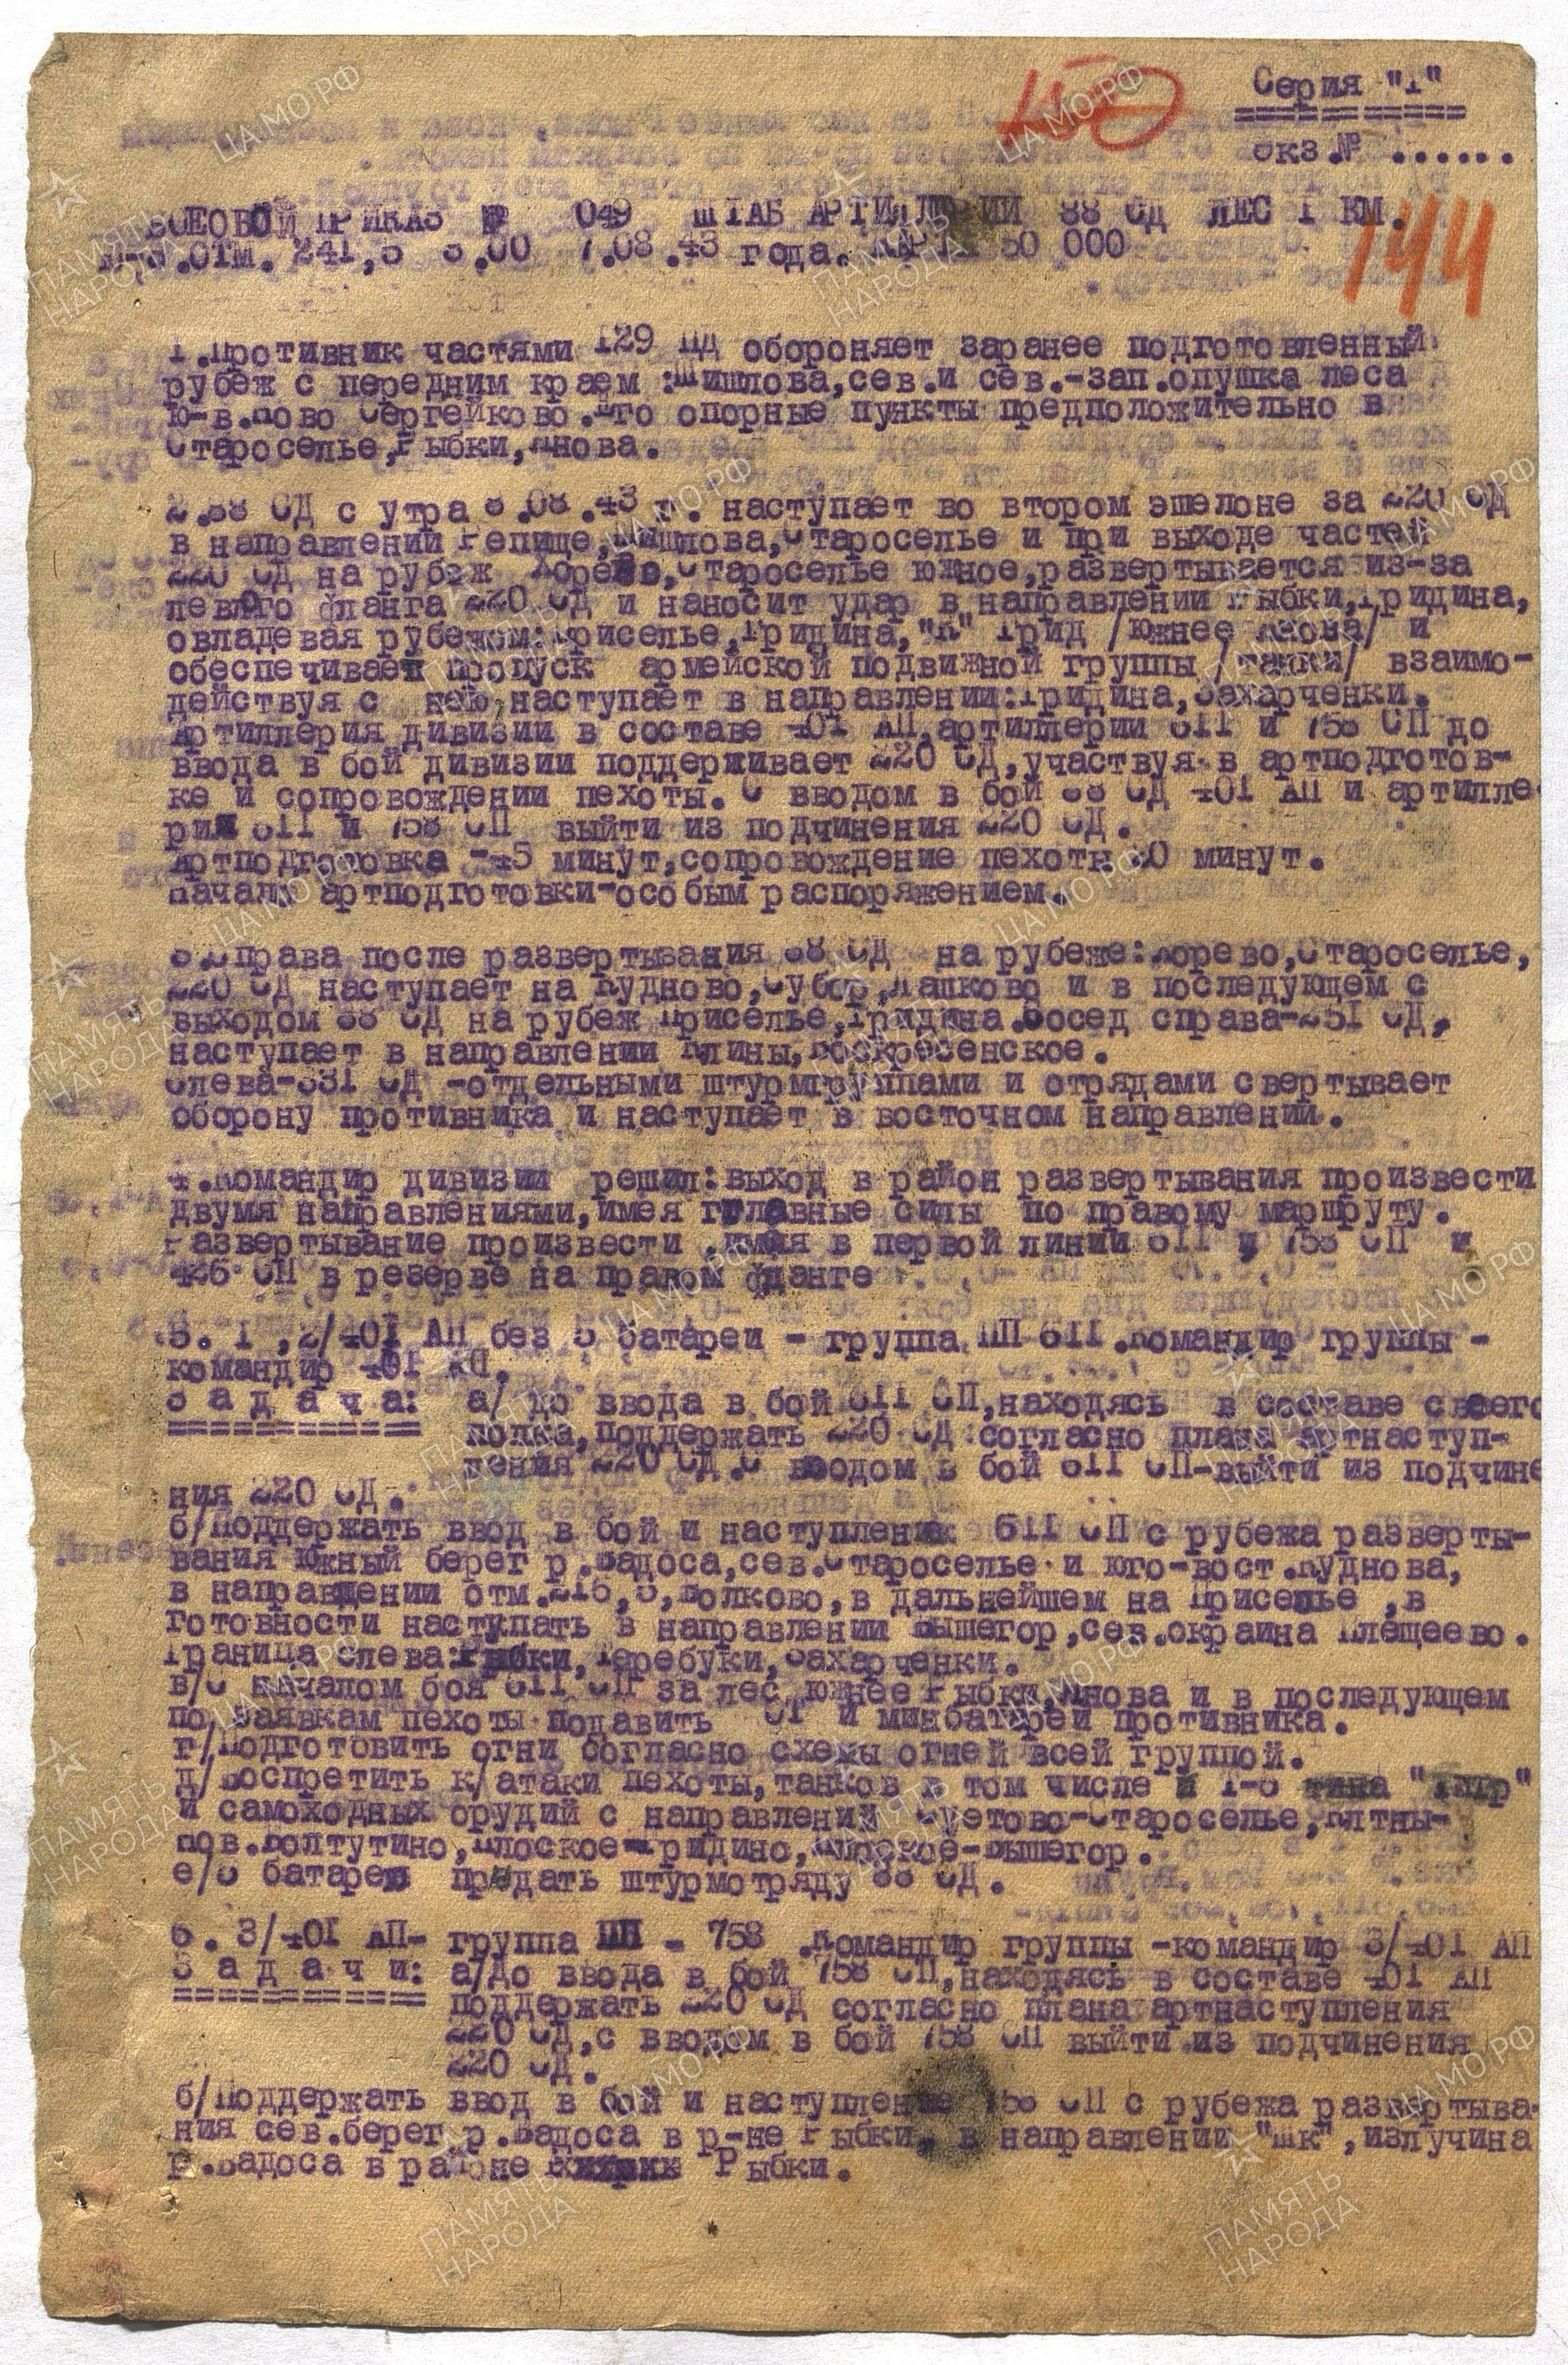 Серия "1"
Экз.№ ......
144
БОЕВОЙ ПРИКАЗ № 049 ШТАБ АРТИЛЛЕРИИ 88 СД ЛЕС 1 КМ.
отм. 241,5 3.00 7.08.43 года. 50 000
1.Противник частями 129 ПД обороняет заранее подготовленный
рубеж с передним краем :Шишлова,сев.и сев.-зап.опушка леса
ю-в.Ново Сергейково.Его опорные пункты предположительно в
Староселье,Рыбки,Янова.
2.88 СД с утра 8.08.43 г. наступает во втором эшелоне за 220 СД
в направлении Репище,Шишлова,Староселье и при выходе частей
220 СД на рубеж Хорево,Староселье южное,развертывается из-за
левого фланга 220 СД и наносит удар в направлении Рыбки,Гридина,
овладевая рубежом:Приселье,Гридина,"К" Грид /южнее Янова/ и
обеспечивает пропуск армейской подвижной группы /танки/ взаимо-
действуя с нею наступает в направлении:Гридина,Захарченки.
Артиллерия дивизии в составе 401 АП,артиллерии 611 и 758 СП до
ввода в бой дивизии поддерживает 220 СД,участвуя в артподготов-
ке и сопровождении пехоты. С вводом в бой 88 СД 401 АП и артилле
рии 611 и 758 СП выйти из подчинения 220 СД.
Артподготовка -45 минут,сопровождение пехоты 0 минут.
Начало артподготовки-особым распоряжением.
3.Справа после развертывания 88 СД на рубеже:Хорево,Староселье,
220 СД наступает на Кудново,Субор,Лапково и в последующем с
выходом 88 СД на рубеж Приселье,Гридина.Сосед справа-251 СД,
наступает в направлении Клины,Воскресенское.
Слева-331 СД -отдельными штурмгруппами и отрядами свертывает
оборону противника и наступает в восточном направлении.
4.Командир дивизии решил:выход в район развертывания произвести
двумя направлениями,имея главные силы по правому маршруту.
Развертывание произвести ,имея в первой линии 611 и 758 СП и
426 СП в резерве на правом фланге
5. 1 ,2/401 АП без 5 батареи - группа ПП 611 .Командир группы -
командир 401 АП.
З а д а ч а: а/ до ввода в бой 611 СП,находясь в составе своего
полка,поддержать 220 СД согласно плана артнаступ-
ления 220 СД.С вводом в бой 611 СП-выйти из подчине
ния 220 СД.
б/Поддержать ввод в бой и наступление 611 СП с рубежа разверты-
вания южный берег р.Вадоса,сев.Староселье и юго-вост.Куднова,
в направлении отм.215,3,Волково,в дальнейшем на Приселье ,в
готовности наступать в направлении Вышегор,сев.окраина Плещеево.
Граница слева:Рыбки,Теребуки,Захарченки.
в/С началом боя 611 СП за лес южнее Рыбки,Янова и в последующем
по заявкам пехоты подавить ОТ и минбатареи противника.
г/Подготовить огни согласно схемы огней всей группой.
д/Воспретить к/атаки пехоты,танков в том числе и Т-6 типа "Тигр"
и самоходных орудий с направлений Суетово-Староселье,
пов.Болтутино,Плоское-Гридино,Плоское-Вышегор.
е/5 батарею придать штурмотряду 88 СД.
6. 3/401 АП- группа ПП - 758 .Командир группы -командир 3/401 АП
З а д а ч и: а/До ввода в бой 758 СП,находясь в составе 401 АП
поддержать 220 СД согласно плана артнаступления
220 СД,с вводом в бой 758 СП выйти из подчинения
220 СД.
б/Поддержать ввод в бой и наступление 758 СП с рубежа развертыва-
ния сев.берег р.Вадоса в р-не Рыбки, в направлении "шк",излучина
р.Вадоса в районе Рыбки.